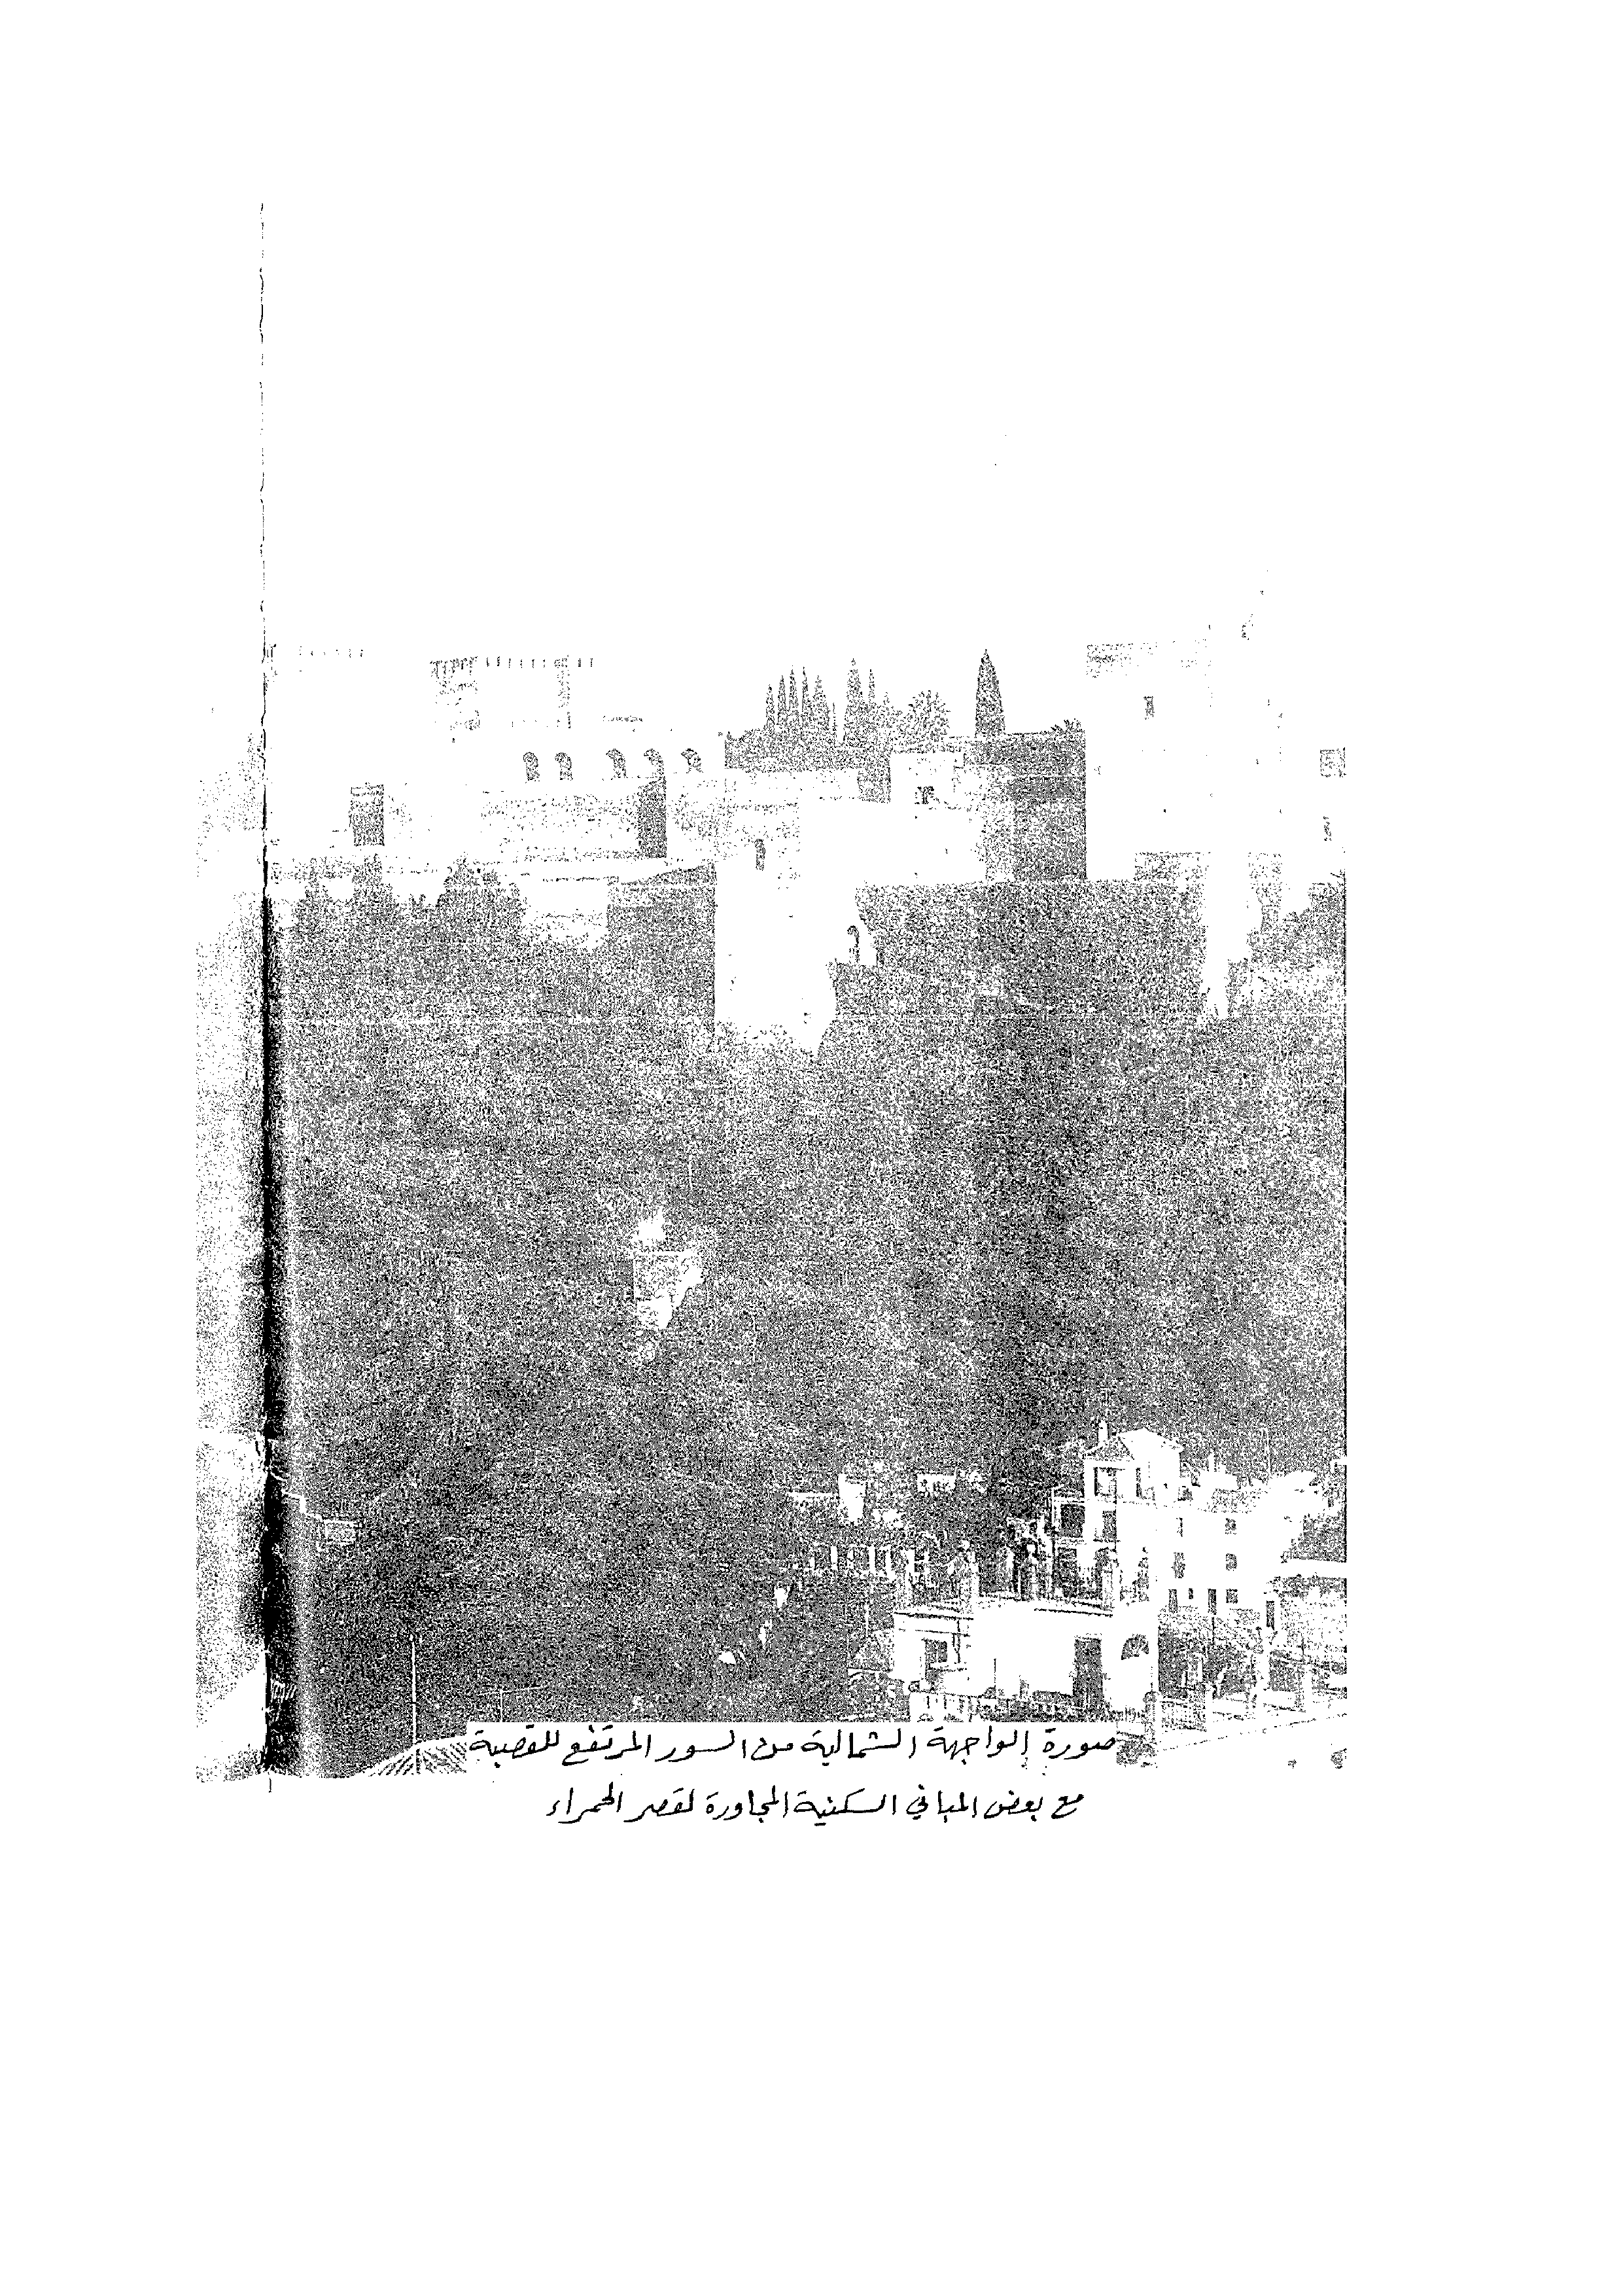 صورة الواجهة الشمالية من السور المرتفع للقصبة
مع بعض المباني السكنية المجاورة لقصر الحمراء